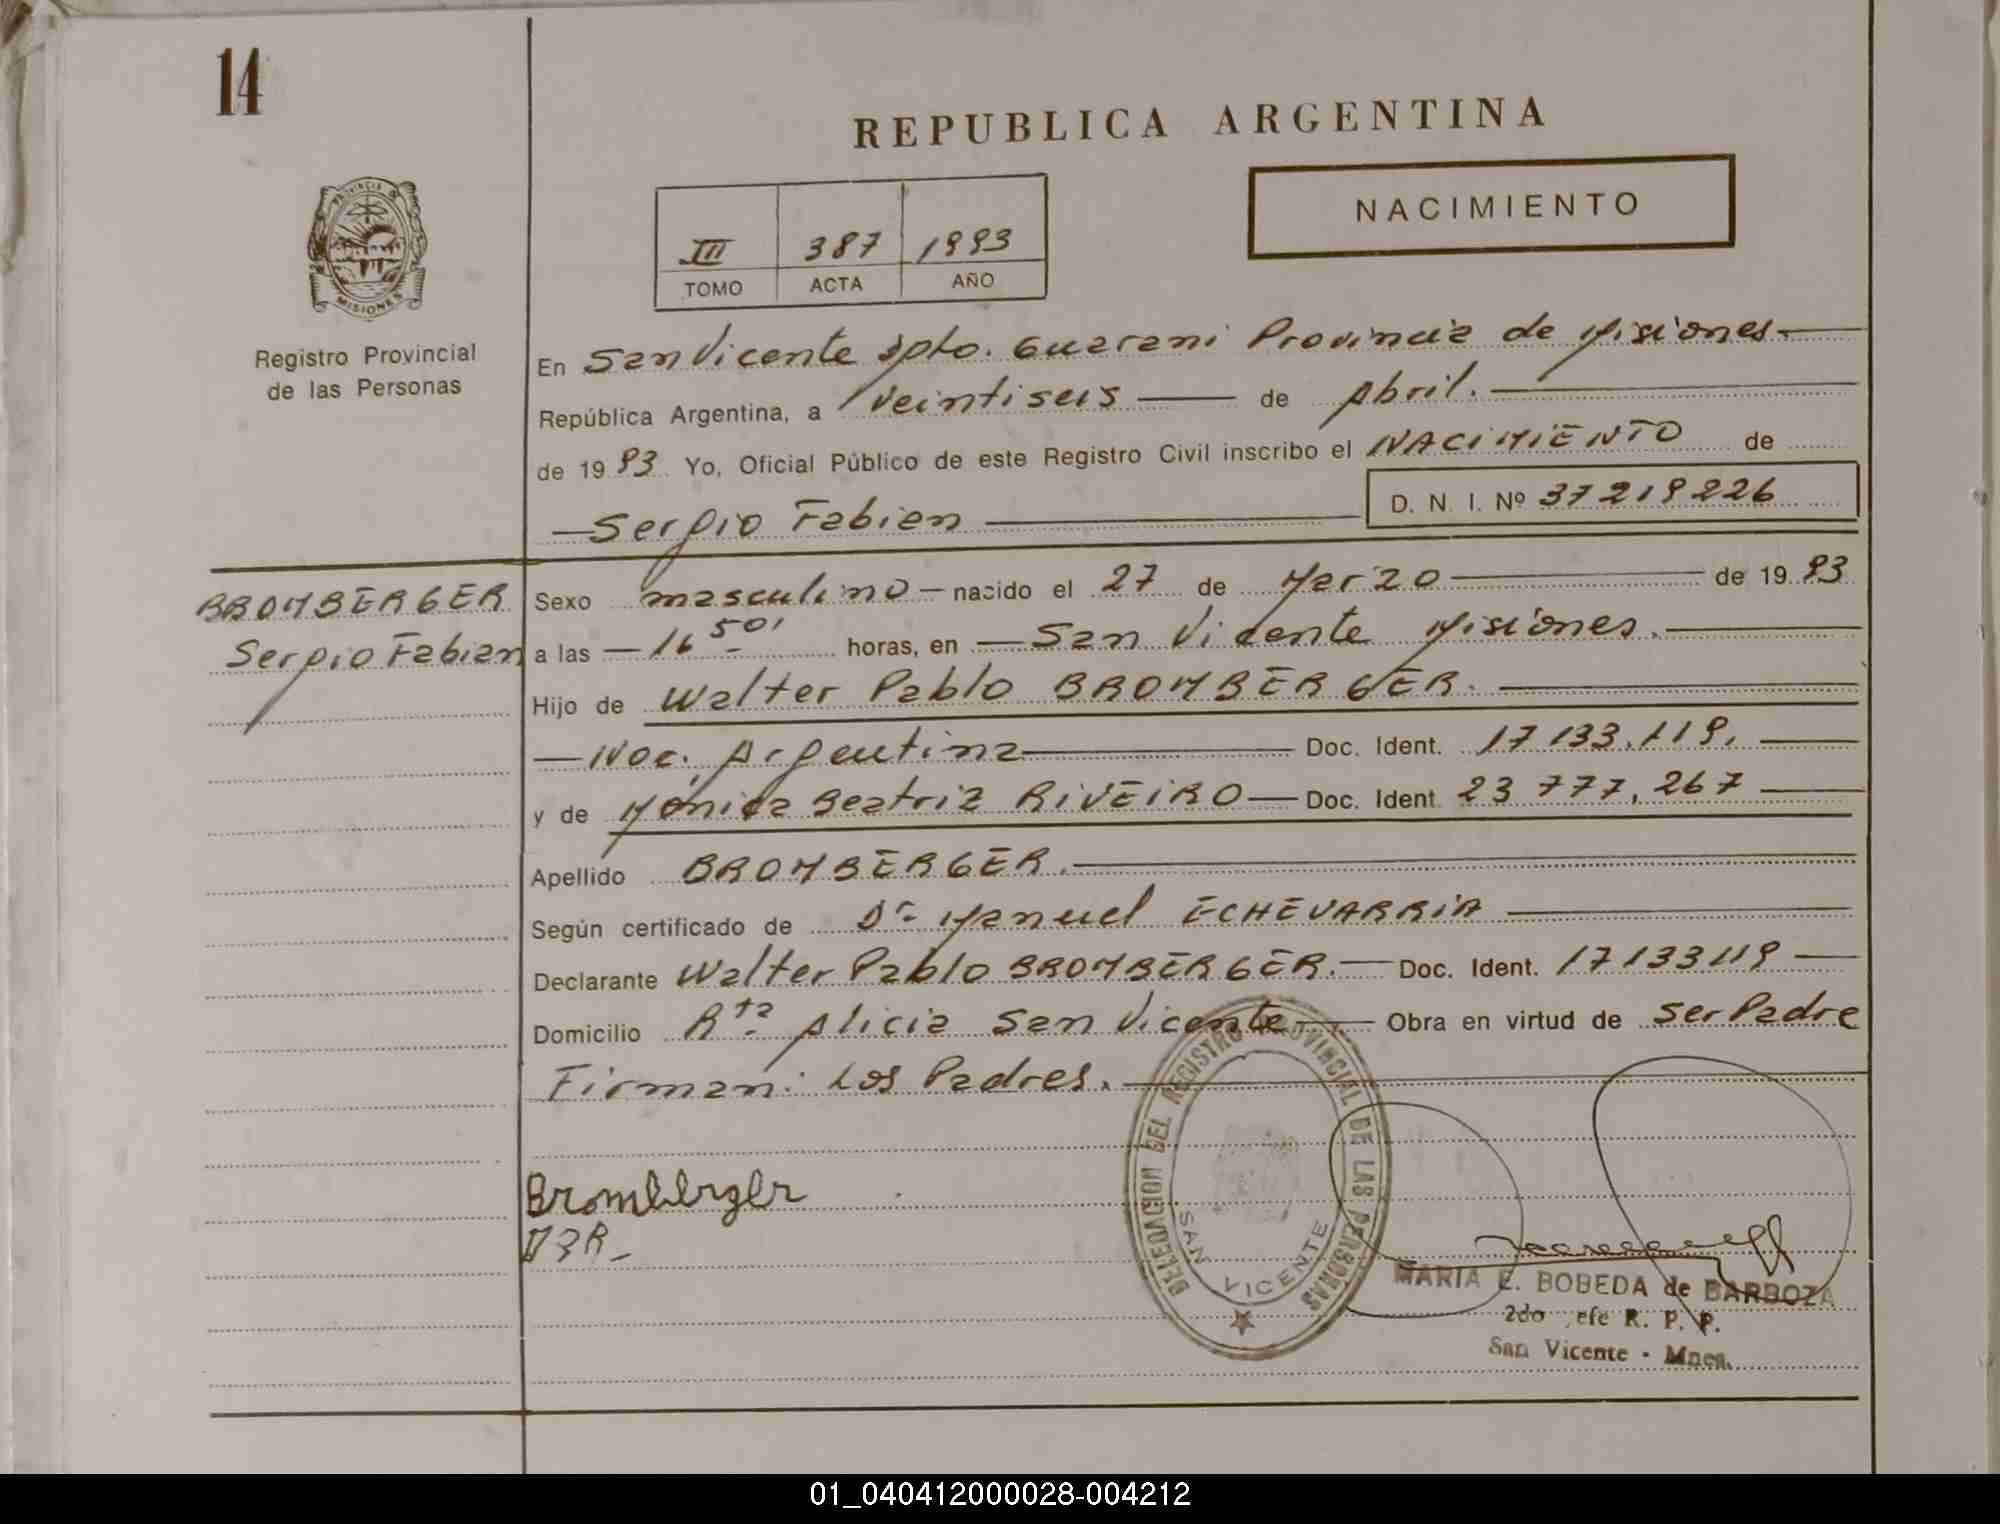 14
REPUBLICA ARGENTINA
NACIMIENTO
III 387 1993
TOMO ACTA AÑO
PROVINCIA DE
MISIONES
Registro Provincial
de las Personas
En San Vicente Dpto. Guarani Provincia de Misiones.
República Argentina, a Veintiseis de Abril.
de 1993 Yo, Oficial Público de este Registro Civil inscribo el NACIMIENTO de
Sergio Fabian D. N. I. Nº 37219226
BROMBERGER
Sergio Fabian
Sexo masculino nacido el 27 de Marzo de 1993
a las 16 50' horas, en San Vicente Misiones.
Hijo de Walter Pablo BROMBERGER.
Nac. Argentina Doc. Ident. 17 133.119.
y de Mónica Beatriz RIVEIRO Doc. Ident. 23 777.267
Apellido BROMBERGER.
Según certificado de Dr. Manuel ECHEVARRIA
Declarante Walter Pablo BROMBERGER. Doc. Ident. 17133119
Domicilio Rta Alicia San Vicente Obra en virtud de ser Padre
Firman: Los Padres.
Bromberger
DELEGACION DEL REGISTRO PROVINCIAL DE LAS PERSONAS
SAN VICENTE
MARIA E. BOBEDA de BARBOZA
2do efe R. P. P.
San Vicente - Mnes.
01_040412000028-004212